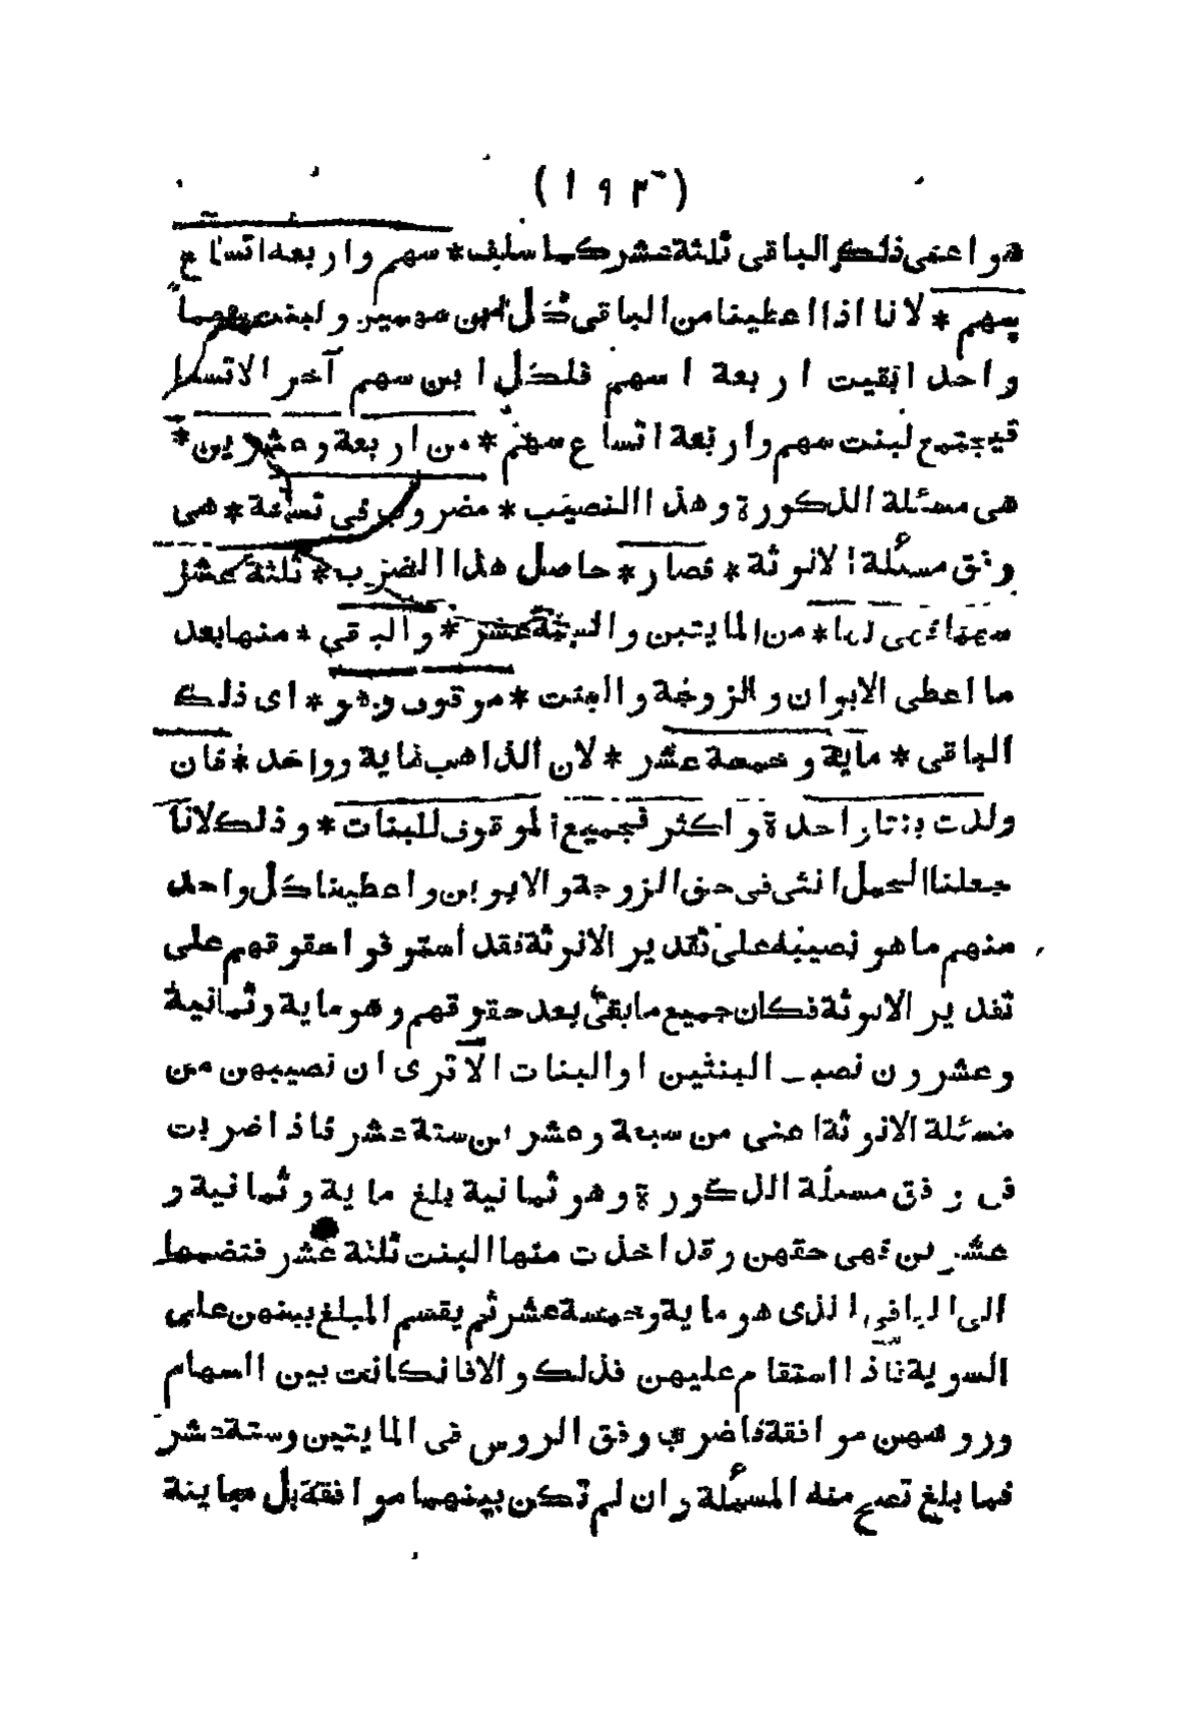 (١٩٣)
هو اعنى ذلك الباقى ثلثة عشر كما سلف * سهم واربعة اتساع
سهم * لانا اذا اعطينا من الباقى كل ابن سهمين ولبنت سهما
واحدا بقيت اربعة اسهم فلكل ابن سهم آخر الا تسعا
فيجتمع لبنت سهم واربعة اتساع سهم * من اربعة وعشرين *
هى مسئلة الذكورة وهذا النصيب * مضروب فى تسعة * هى
وفق مسئلة الانوثة * فصار * حاصل هذا الضرب * ثلثة عشر
سهما فهى لها * من المايتين والستة عشر * والباقى * منها بعد
ما اعطى الابوان والزوجة والبنت * موقوف وهو * اى ذلك
الباقى * ماية وخمسة عشر * لان الذاهب ماية وواحد * فان
ولدت بنتا واحدة واكثر فجميع الموقوف للبنات * وذلك لانا
جعلنا الحمل انثى فى حق الزوجة والابوين واعطينا كل واحد
منهم ما هو نصيبه على تقدير الانوثة فقد استوفوا حقوقهم على
تقدير الانوثة فكان جميع ما بقى بعد حقوقهم وهو ماية وثمانية
وعشرون نصيب البنتين او البنات الا ترى ان نصيبهن من
مسئلة الانوثة اعنى من سبعة وعشرين ستة عشر فاذا ضربت
فى وفق مسئلة الذكورة وهو ثمانية بلغ ماية وثمانية و
عشرين فهى حقهن وقد اخذت منها البنت ثلثة عشر فتضمها
الى الباقى الذى هو ماية وخمسة عشر ثم يقسم المبلغ بينهن على
السوية فاذا استقام عليهن فذلك والا فانكانت بين السهام
وروسهن موافقة فاضرب وفق الروس فى المايتين وستة عشر
فما بلغ تصح منه المسئلة وان لم تكن بينهما موافقة بل مباينة